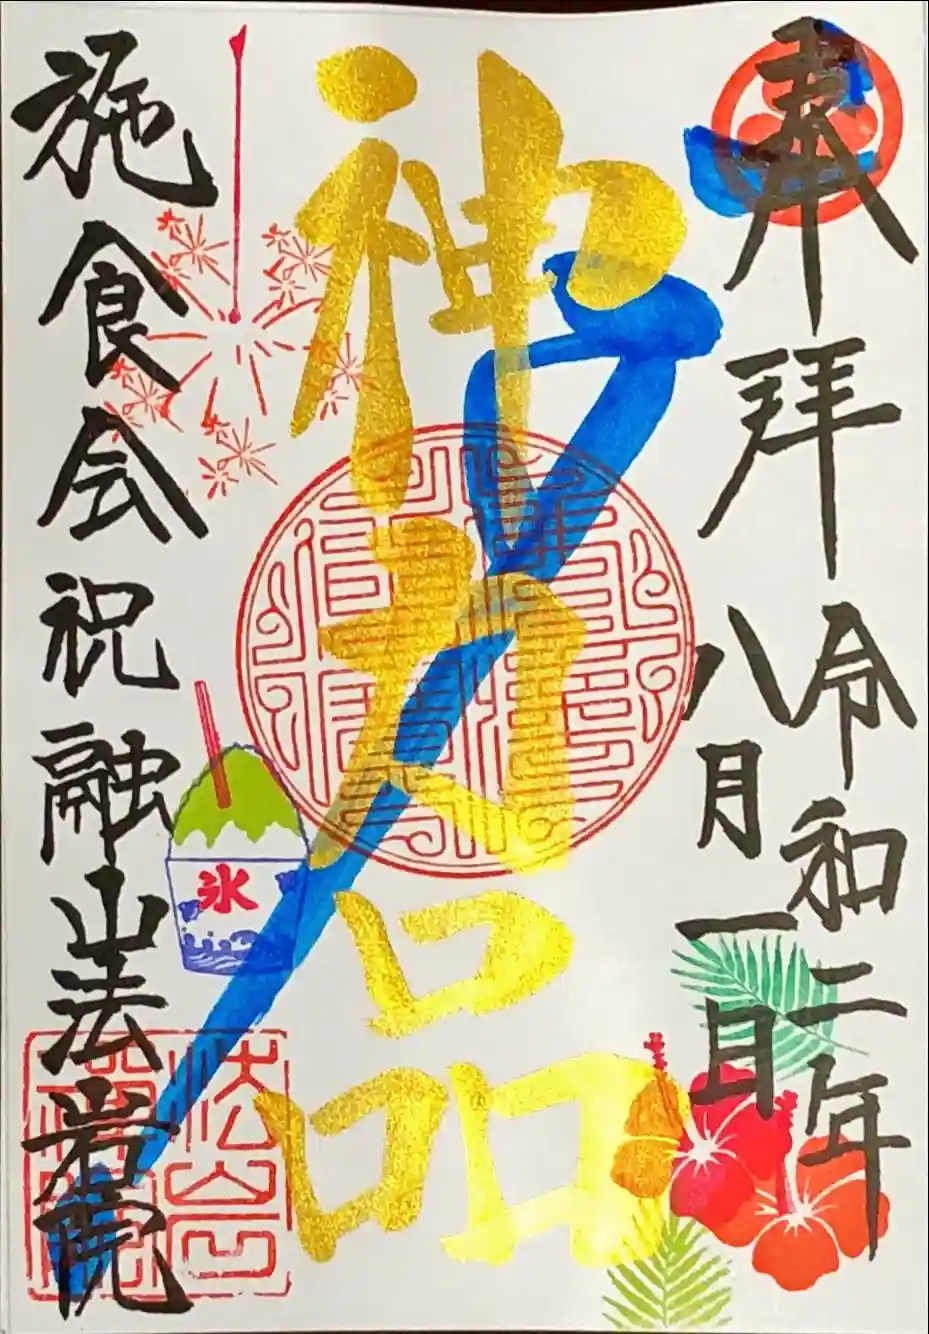 奉拝
令和二年
八月一日
神力品
施食会祝融山法岩院
氷